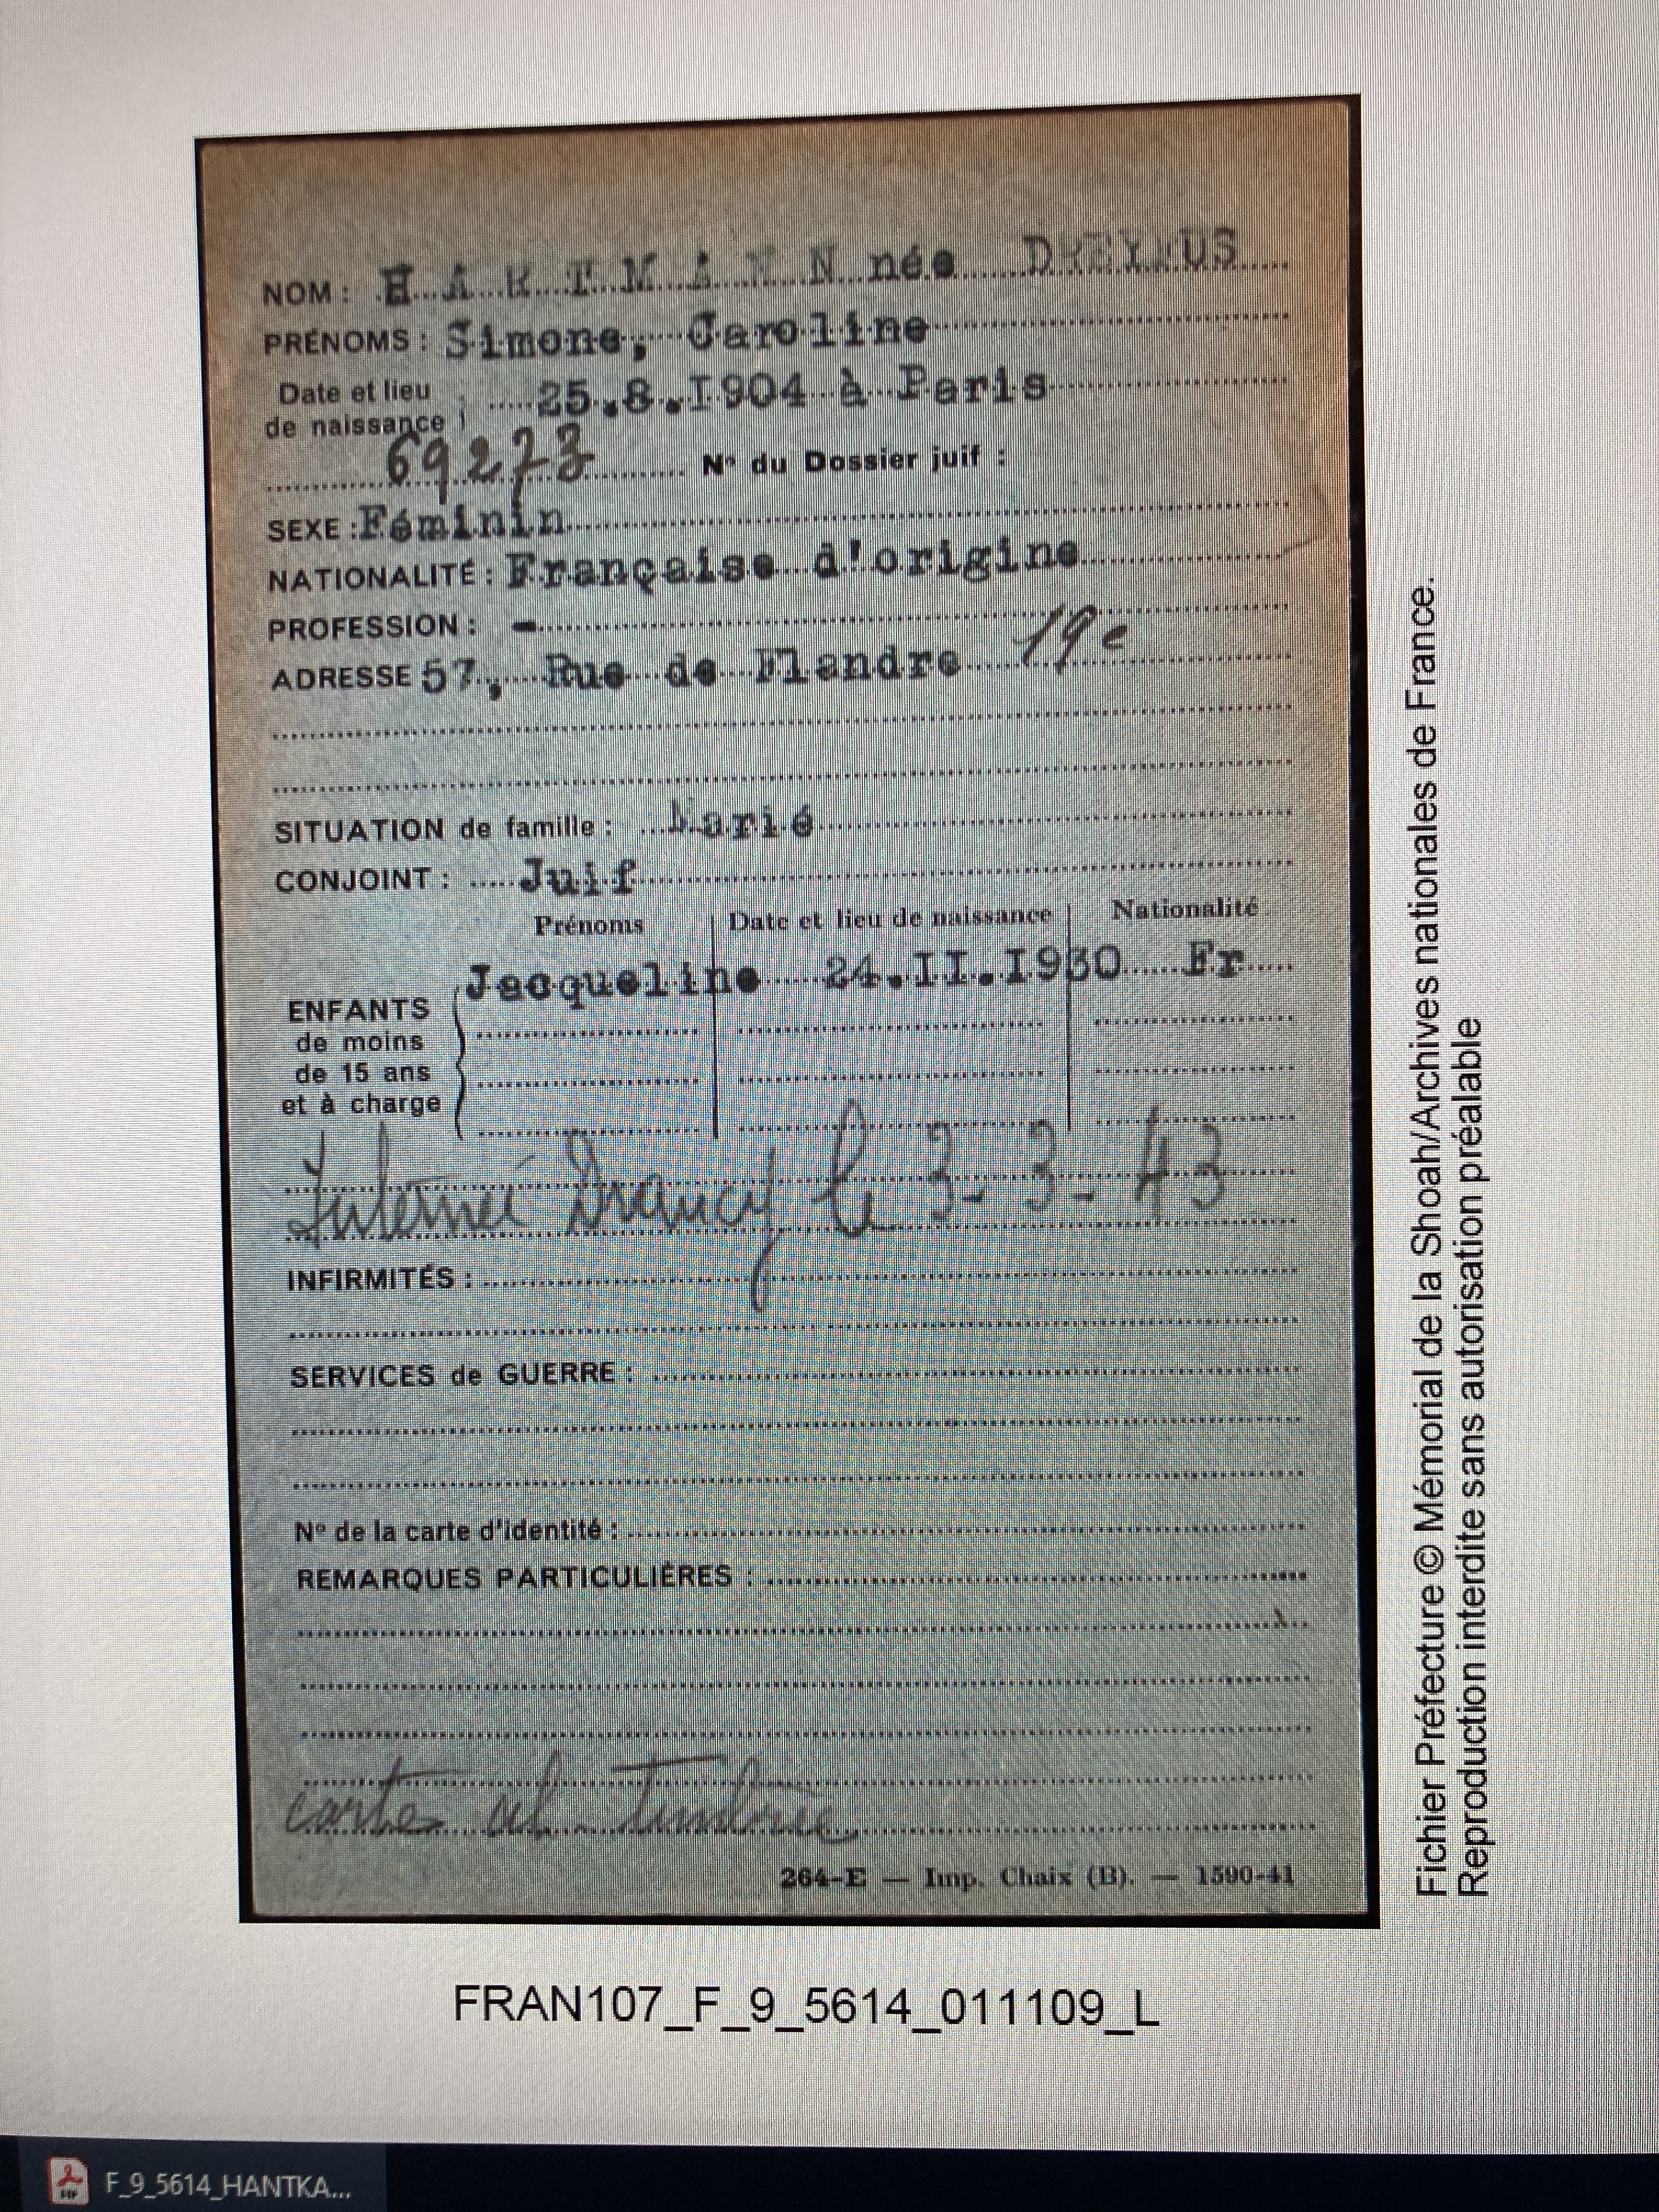 NOM : HARTMANN née DREYFUS
PRÉNOMS : Simone, Caroline
Date et lieu
de naissance : 25.8.I904 à Paris
69273 Nº du Dossier juif :
SEXE : Féminin
NATIONALITÉ : Française d'origine
PROFESSION : -
ADRESSE 57, Rue de Flandre 19e
SITUATION de famille : Marié
CONJOINT : Juif
Prénoms Date et lieu de naissance Nationalité
Jacqueline 24.II.I930 Fr
ENFANTS
de moins
de 15 ans
et à charge
Internée Drancy le 3-3-43
INFIRMITÉS :
SERVICES de GUERRE :
Nº de la carte d'identité :
REMARQUES PARTICULIÈRES :
264-E — Imp. Chaix (B). — 1590-41
Fichier Préfecture © Mémorial de la Shoah/Archives nationales de France.
Reproduction interdite sans autorisation préalable
FRAN107_F_9_5614_011109_L
F_9_5614_HANTKA...